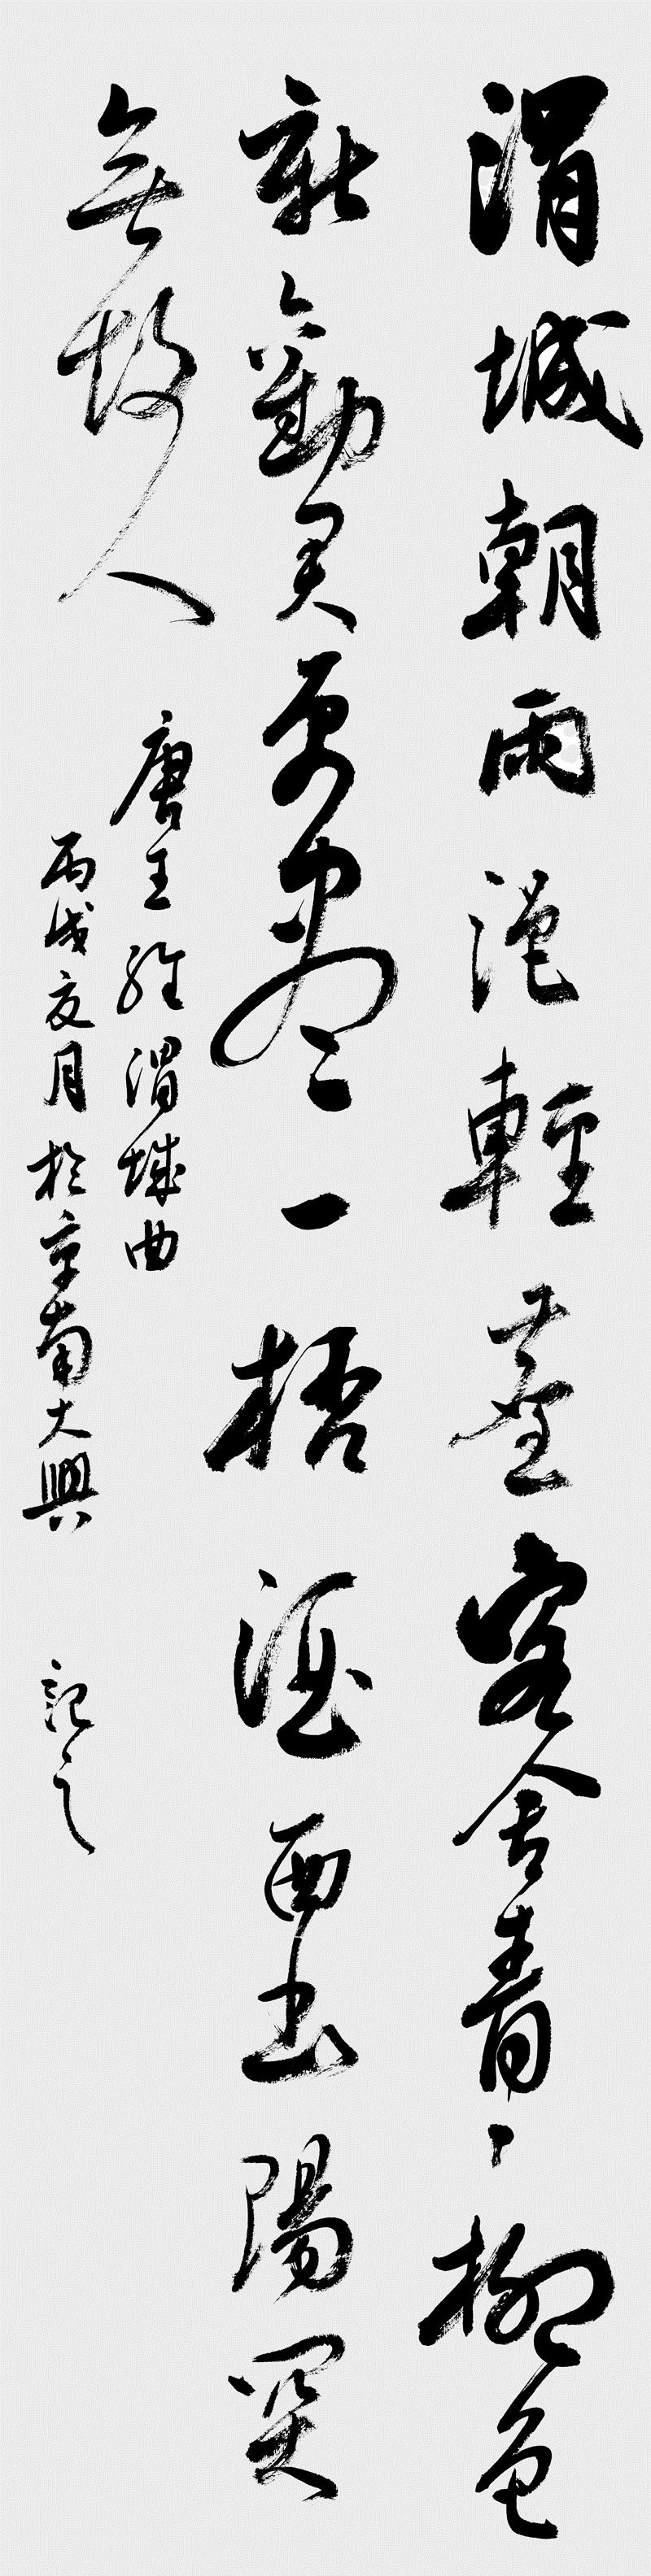 渭城朝雨浥輕塵客舍青、柳色
新勸君更盡一杯酒西出陽関
無故人
唐王維渭城曲
丙戌夏月於京南大興 記之